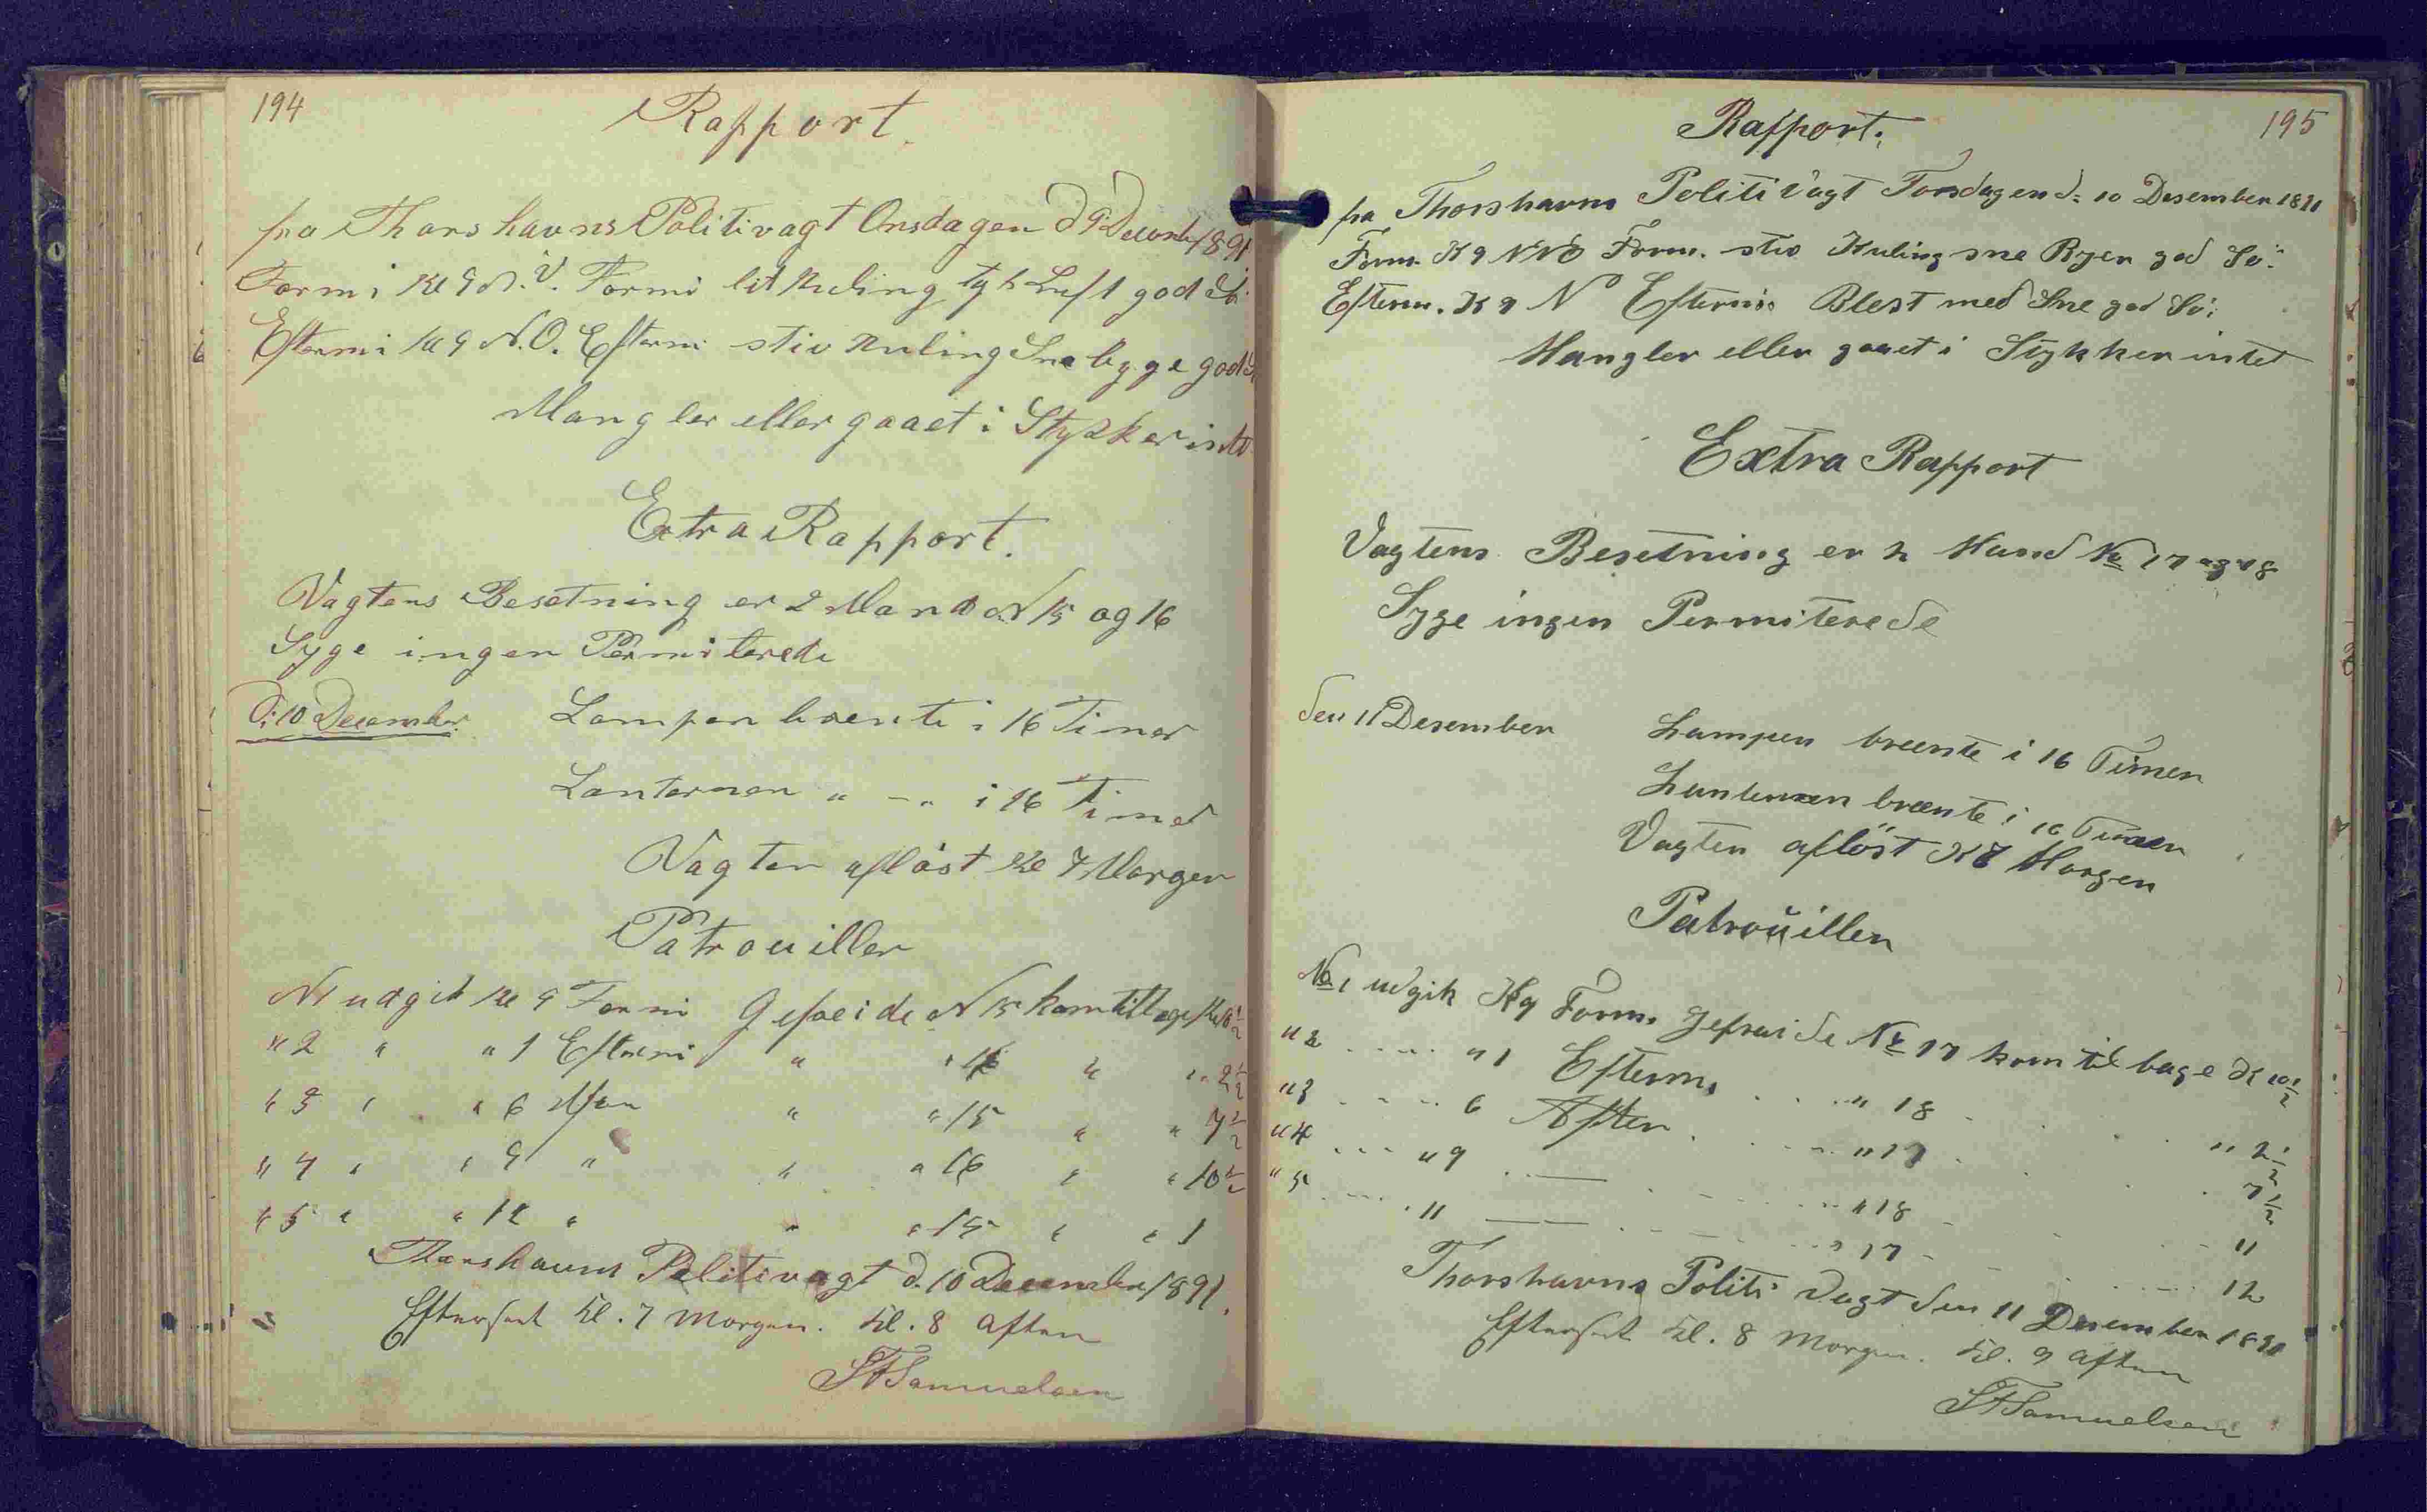 194
Rapport.
fra Thorshavns Politivagt Onsdagen d 9 Decembr 1891
Formi Kl 9 N.V. Formi lit Kuling tyk Luft god Sö.
Eftermi Kl 9 N.O. Eftermi stiv Kuling Sne bygge god
Mangler eller gaaet i Stykker inte
Extra Rapport.
Vagtens Besetning er 2 Mand N 15 og 16
Syge ingen Permiterede
D: 10 December. Lampen brente i 16 Timer
Lanternen " - " i 16 Timer
Vagten aflöst Kl 7 Morgen
Patrouiller
N1 udgik Kl 9 Formi Gefreide N 15 kom tilbage Kl 10 1/2
" 2 " " 1 Eftermi " " 16 " " 2 1/2
" 3 " " 6 Aften " " 15 " " 7 1/2
" 4 " " 9 " " " 16 " " 10 1/2
" 5 " " 12 " " " 15 " " 1
Thorshavns Politivagt d. 10 December 1891.
Efterseet Kl. 7 Morgen. Kl. 8 Aften
Samuelsen
195
Rapport.
fra Thorshavns Politi Vagt Torsdagen d: 10 Desember 1891
Form. K 9 NNO Form. stiv Kuling sne Byer god Sö.
Efterm. K 9 N Efterm. Blest med Sne god Sö.
Mangler eller gaaet i Stykker intet
Extra Rapport
Vagtens Besetning er 2 Mand No 17 og 18
Syge ingen Permiterede
den 11 Desember Lampen brente i 16 Timer
Lanternen brænte i 16 Timer
Vagten aflöst K 8 Morgen
Patrouiller
No 1 udgik K 9 Form. Gefreide No 17 kom tilbage K 10 1/2
" 2 " 1 Efterm. " 18 " 2 1/2
" 3 6 Aften " 17 7 1/2
" 4 " 9 " 18 11
" 5 " 11 " 17 12
Thorshavns Politi Vagt den 11 Desember 1891
Efterseet Kl. 8 Morgen. Kl. 9 Aften
Samuelsen